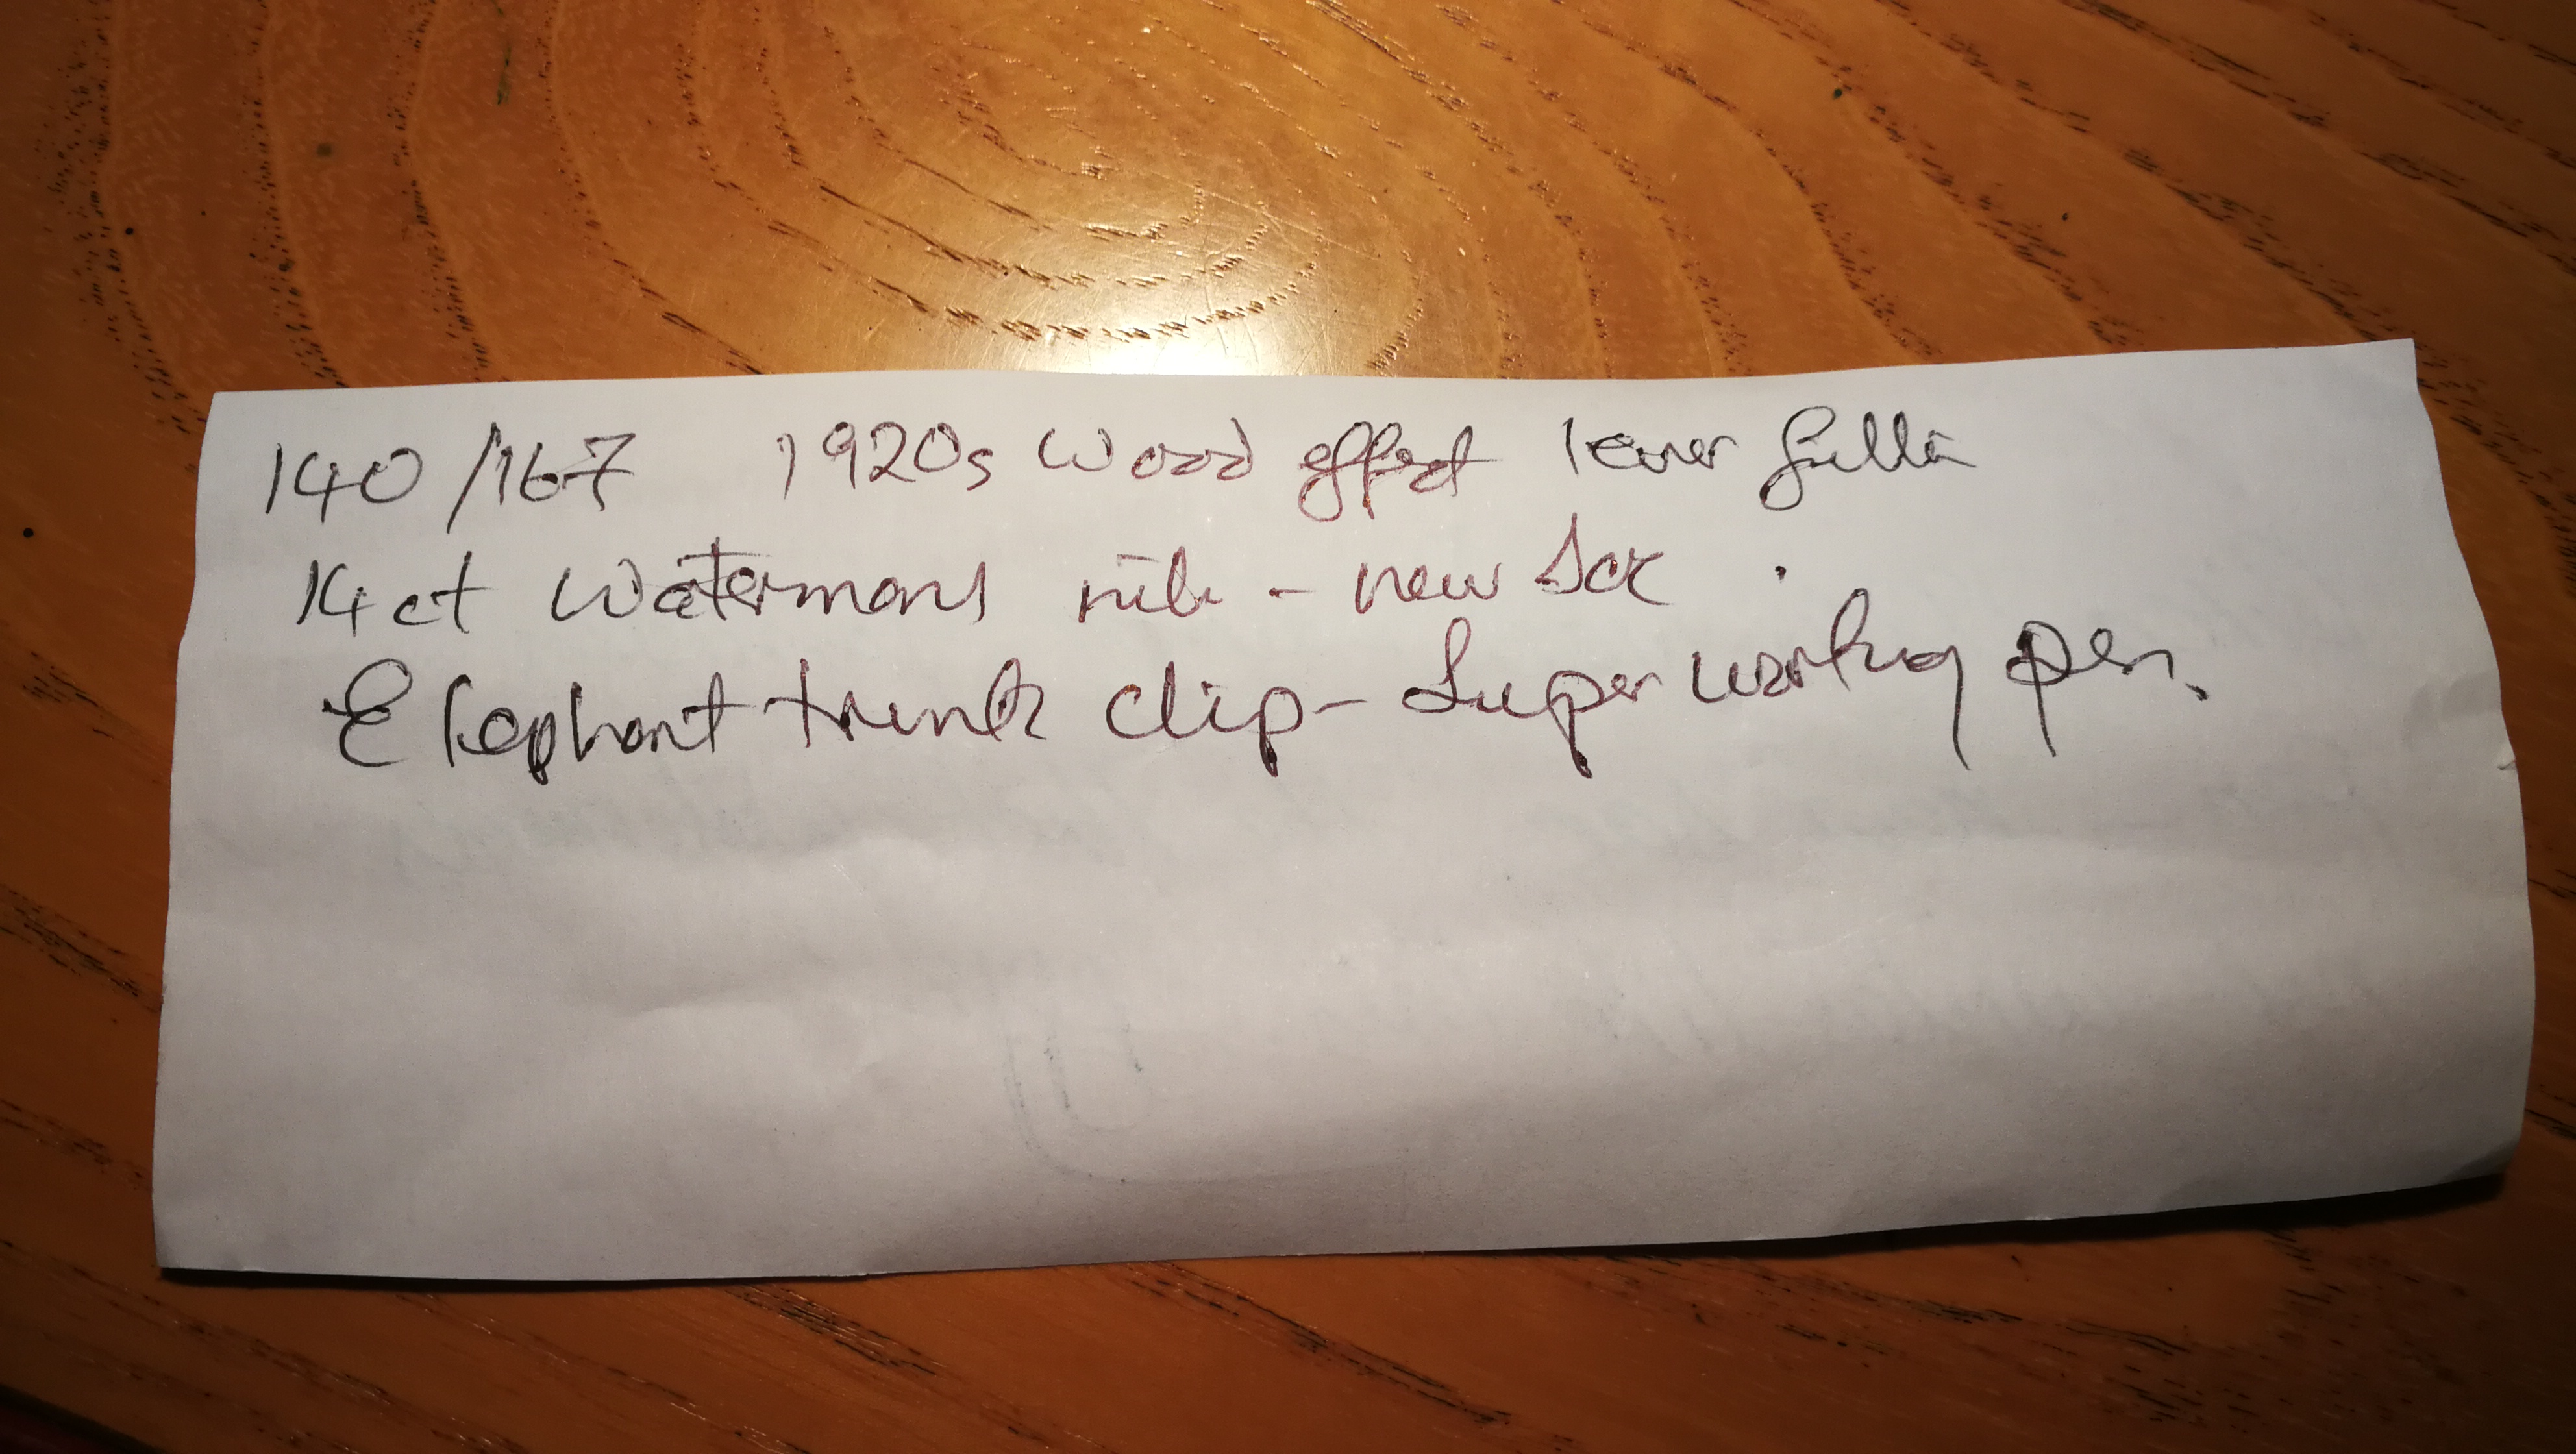 140/167 1920s Wood effect lever filler
14ct Watermans nib - new Sac.
Elephant trunk clip - Super working pen.